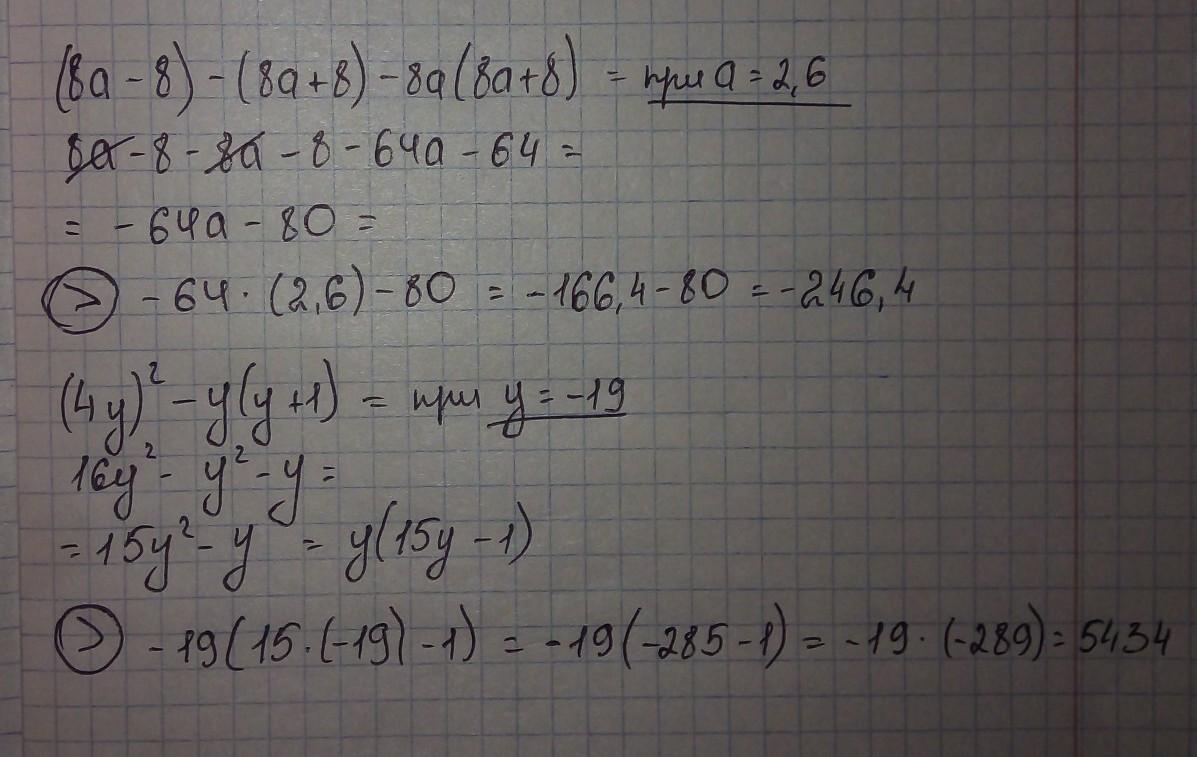 (8a - 8) - (8a + 8) - 8a(8a + 8) = при a = 2,6
8a - 8 - 8a - 8 - 64a - 64 =
= - 64a - 80 =
> - 64 · (2,6) - 80 = -166,4 - 80 = -246,4
(4y)² - y(y + 1) = при y = -19
16y² - y² - y =
= 15y² - y = y(15y - 1)
> - 19(15 · (-19) - 1) = -19(-285 - 1) = -19 · (-289) = 5434